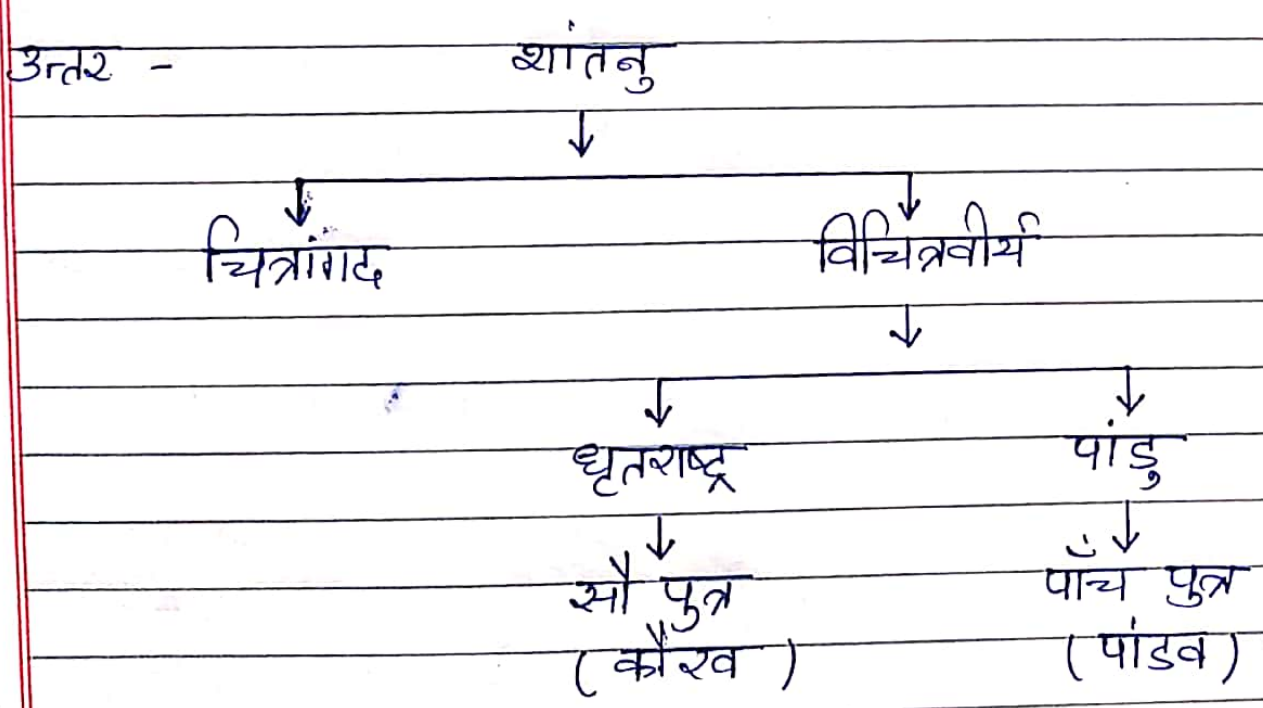 उत्तर - शांतनु
चित्रांगद विचित्रवीर्य
धृतराष्ट्र पांडु
सौ पुत्र पाँच पुत्र
(कौरव) (पांडव)